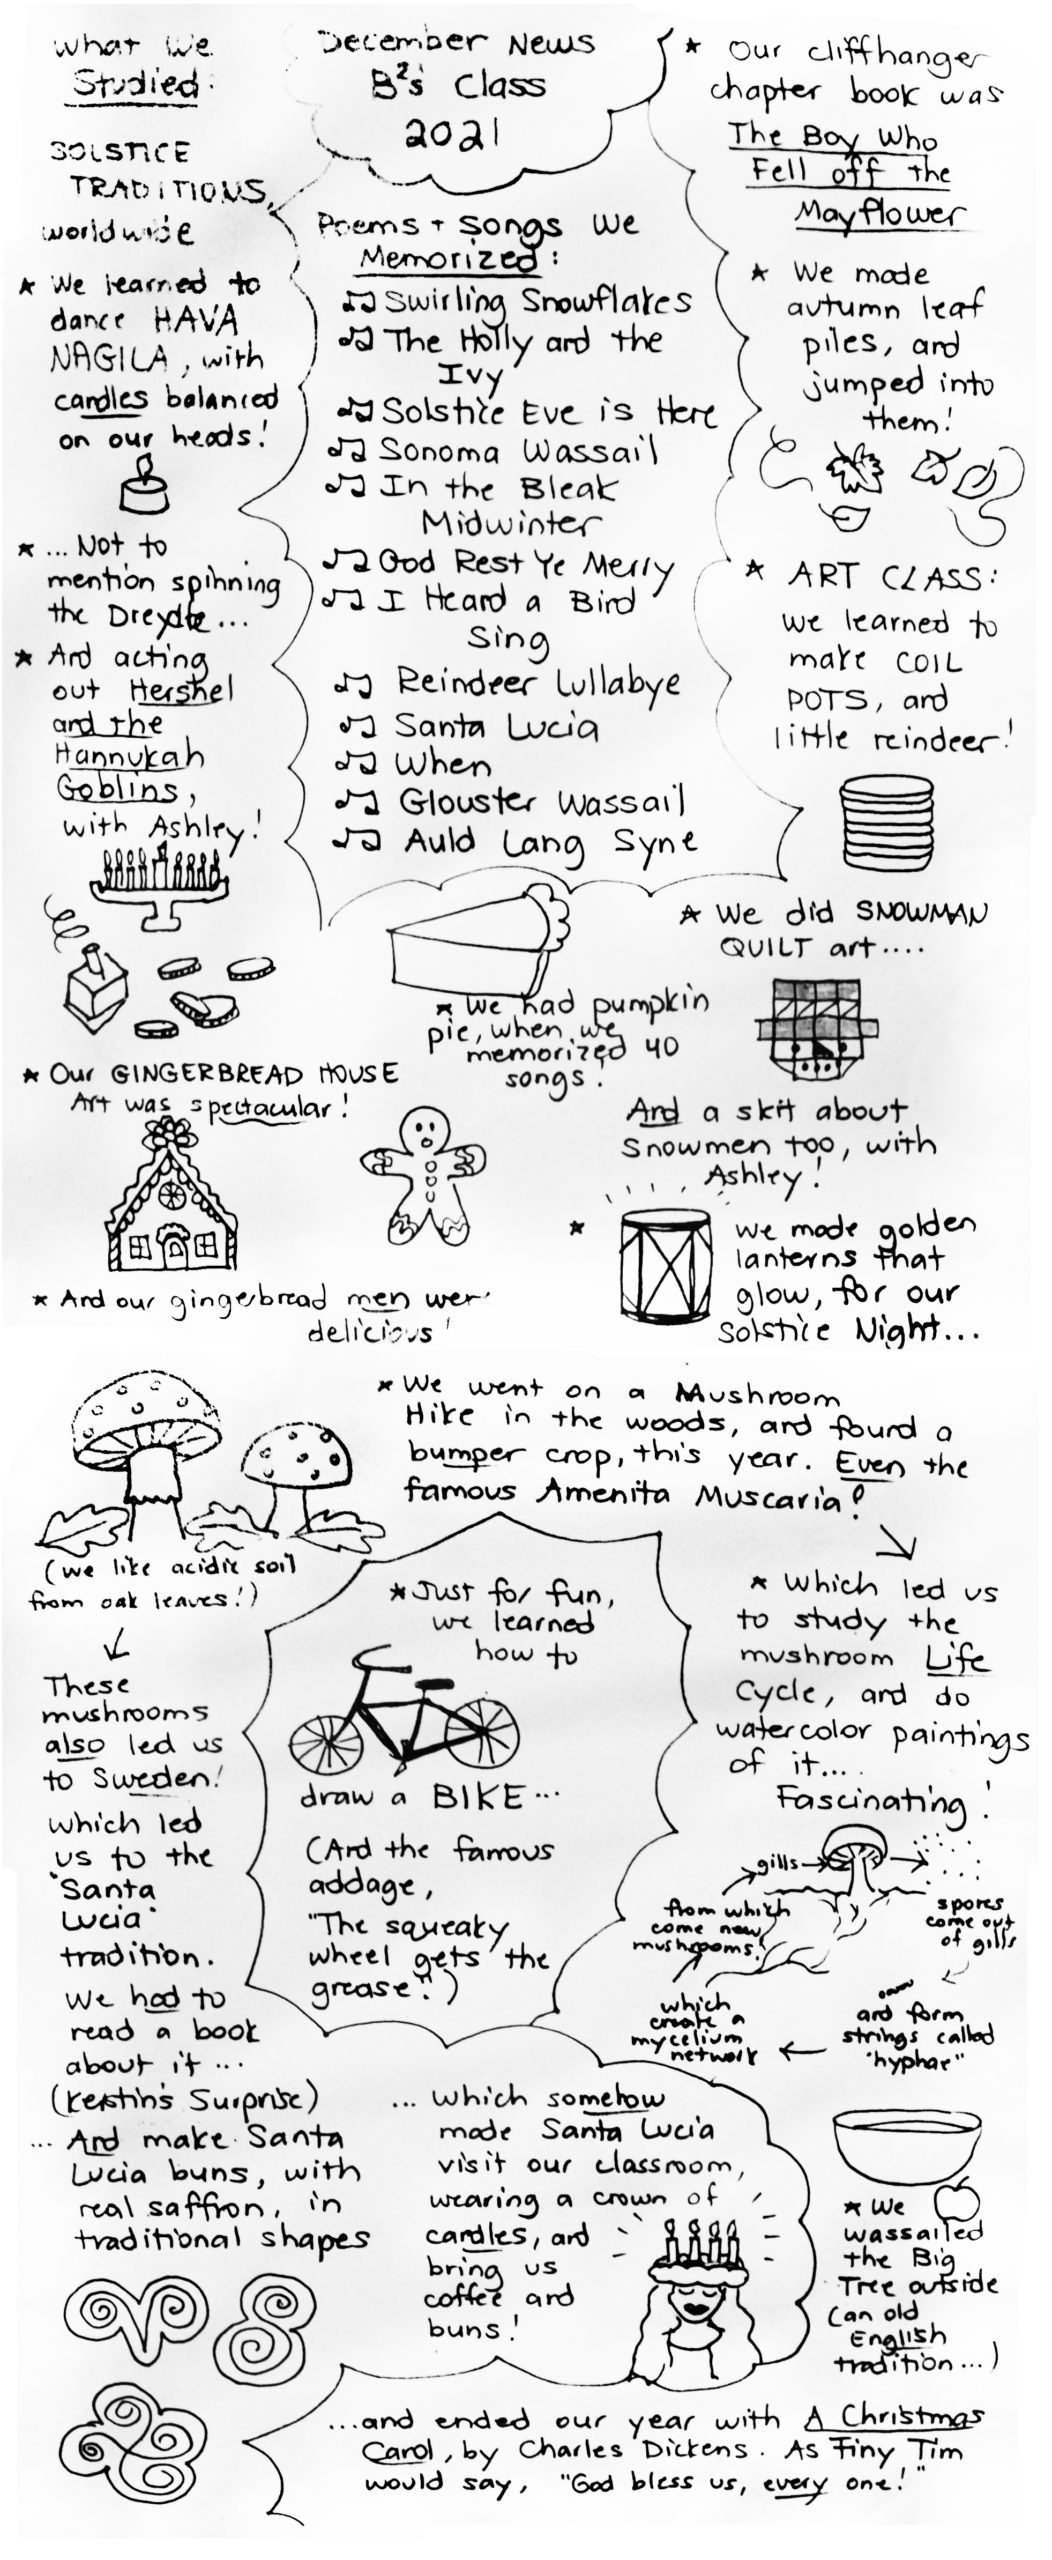 December News
B²s' Class
2021
What We
Studied:
SOLSTICE
TRADITIONS,
worldwide
★ We learned to
dance HAVA
NAGILA, with
candles balanced
on our heads!
★ ... Not to
mention spinning
the Dreydle...
★ And acting
out Hershel
and the
Hannukah
Goblins,
with Ashley!
Poems + Songs We
Memorized:
♫ Swirling Snowflakes
♫ The Holly and the
Ivy
♫ Solstice Eve is Here
♫ Sonoma Wassail
♫ In the Bleak
Midwinter
♫ God Rest Ye Merry
♫ I Heard a Bird
Sing
♫ Reindeer Lullabye
♫ Santa Lucia
♫ When
♫ Glouster Wassail
♫ Auld Lang Syne
★ Our cliffhanger
chapter book was
The Boy Who
Fell off the
Mayflower
★ We made
autumn leaf
piles, and
jumped into
them!
★ ART CLASS:
we learned to
make COIL
POTS, and
little reindeer!
★ We had pumpkin
pie, when we
memorized 40
songs!
★ We did SNOWMAN
QUILT art....
And a skit about
Snowmen too, with
Ashley!
★ Our GINGERBREAD HOUSE
Art was spectacular!
★ And our gingerbread men wer
delicious!
★ we made golden
lanterns that
glow, for our
Solstice Night...
★ We went on a Mushroom
Hike in the woods, and found a
bumper crop, this year. Even the
famous Amenita Muscaria!
(we like acidic soil
from oak leaves!)
These
mushrooms
also led us
to Sweden!
which led
us to the
"Santa
Lucia"
tradition.
We had to
read a book
about it...
(Kerstin's Surprise)
... And make Santa
Lucia buns, with
real saffron, in
traditional shapes
★ Just for fun,
we learned
how to
draw a BIKE...
(And the famous
addage,
"The squeaky
wheel gets the
grease".)
★ Which led us
to study the
mushroom Life
Cycle, and do
watercolor paintings
of it....
Fascinating!
gills
spores
come out
of gills
and form
strings called
"hyphae"
which
create a
mycelium
network
from which
come new
mushrooms!
... which somehow
made Santa Lucia
visit our classroom,
wearing a crown of
candles, and
bring us
coffee and
buns!
★ We
wassailed
the Big
Tree outside
(an old
English
tradition...)
...and ended our year with A Christmas
Carol, by Charles Dickens. As Tiny Tim
would say, "God bless us, every one!"